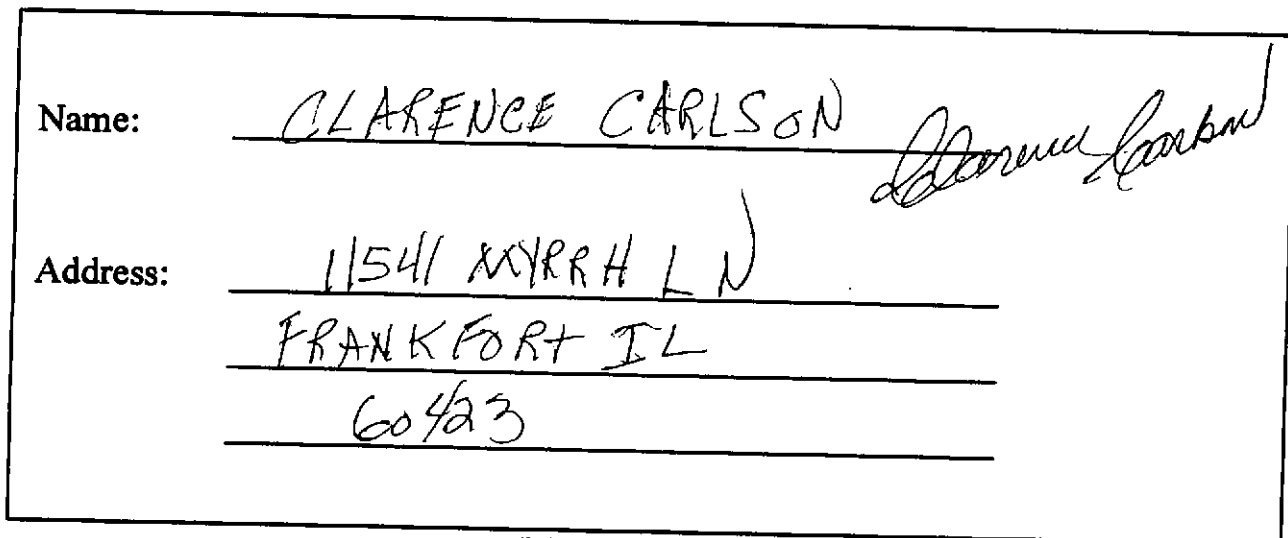 Name: CLARENCE CARLSON Clarence Carlson
Address: 11541 MYRRH LN
FRANKFORT IL
60423